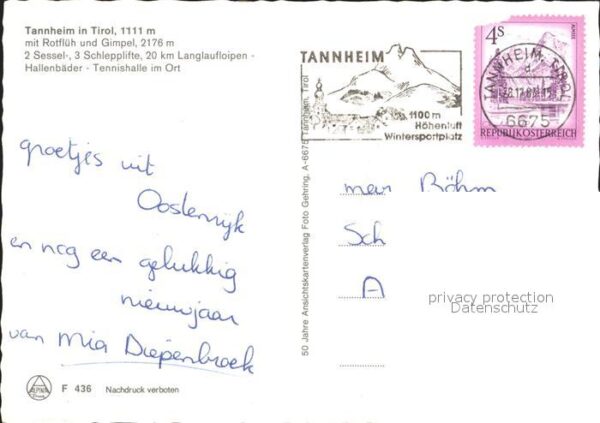 Tannheim in Tirol, 1111 m
mit Rotflüh und Gimpel, 2176 m
2 Sessel-, 3 Schlepplifte, 20 km Langlaufloipen -
Hallenbäder - Tennishalle im Ort
groetjes uit
Oostenrijk
en nog een gelukkig
nieuwjaar
van Mia Diepenbroek
F 436 Nachdruck verboten
50 Jahre Ansichtskartenverlag Foto Gehring, A-6675 Tannheim, Tirol
TANNHEIM
1100 m
Höhenluft
Wintersportplatz
4S
REPUBLIK ÖSTERREICH
TANNHEIM, TIROL
6675
mevr Böhm
Sch
A
privacy protection
Datenschutz